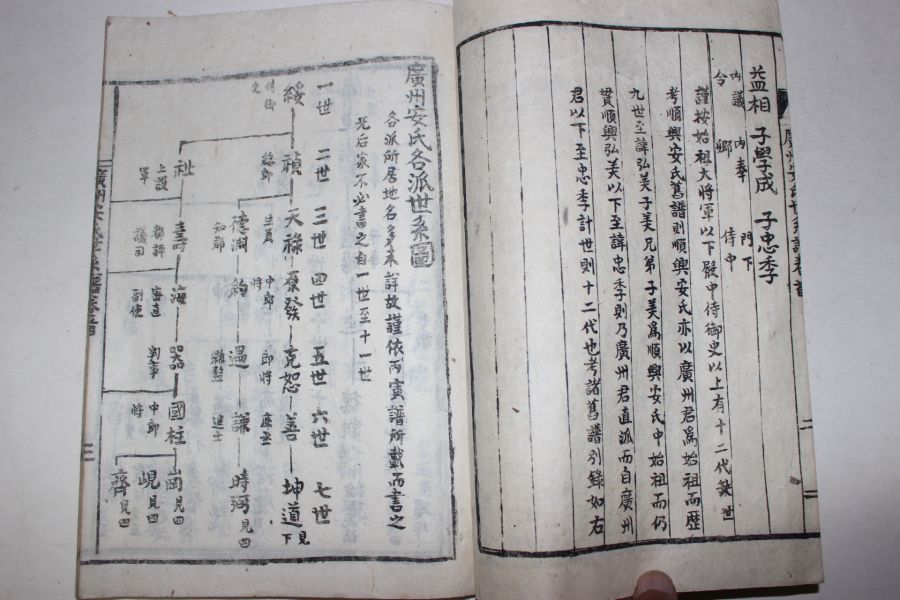 益相 子學成 子忠季
內議令 內奉卿 門下侍中
謹按始祖大將軍以下殿中侍御史以上有十二代缺世
考順興安氏舊譜則順興安氏亦以廣州君爲始祖而歷
九世至諱弘美子美兄弟子美爲順興安氏中始祖而仍
貫順興弘美以下至諱忠季則乃廣州君直派而自廣州
君以下至忠季計世則十二代也考諸舊譜別錄如右
二
廣州安氏各派世系圖
各派所居地名多未詳故謹依丙寅譜所載而書之
先后家不必書之自一世至十一世
一世 二世 三世 四世 五世 六世 七世
綏 禎 天祿 康發 克恕 善 坤道 見下
侍御史
德淵 約 遇 謙 時弼 見四
生員 中郎將 郎將
祉 壽 海 器 國柱 崗 見四
上護軍
密直副使 判事 中郎將
峴 見四
齊 見四
三